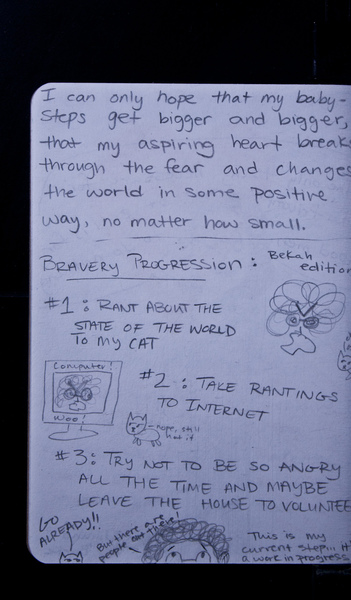 I can only hope that my baby-
steps get bigger and bigger,
that my aspiring heart breaks
through the fear and changes
the world in some positive
way, no matter how small.
BRAVERY PROGRESSION: Bekah
edition
#1: RANT ABOUT THE
STATE OF THE WORLD
To my CAT
Computer!
Woo!
#2: TAKE RANTINGS
TO INTERNET
nope, still
not it
#3: TRY NOT TO BE SO ANGRY
ALL THE TIME AND MAYBE
LEAVE THE HOUSE TO VOLUNTEE
GO
ALREADY!!
But there are
people out there!
This is my
current step... it's
a work in progress